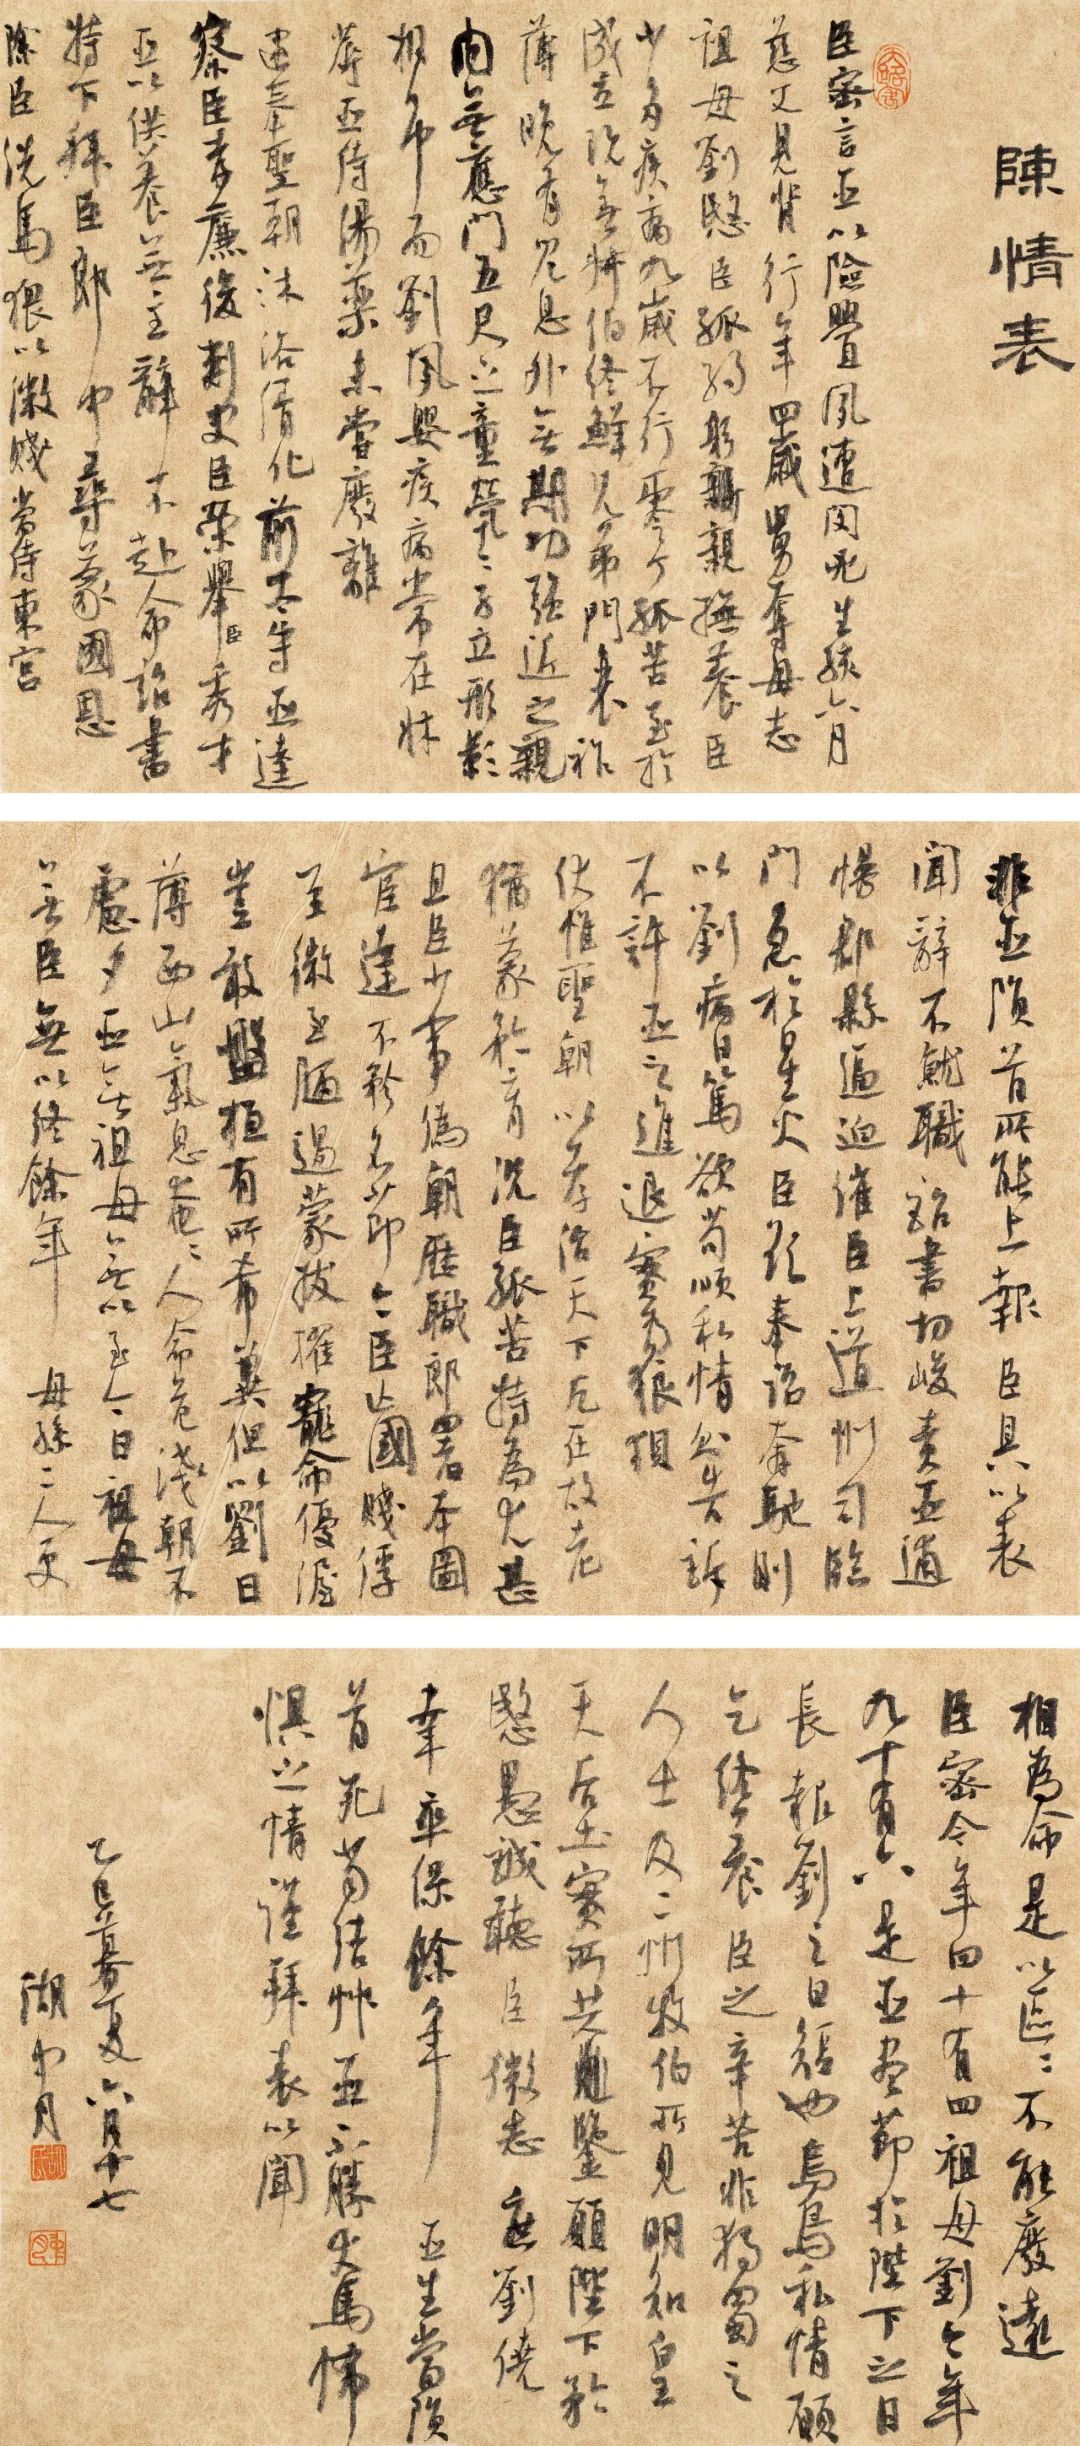 陳情表
臣密言臣以險釁夙遭閔凶生孩六月
慈父見背行年四歲舅奪母志
祖母劉愍臣孤弱躬親撫養臣
少多疾病九歲不行零丁孤苦至於
成立既無叔伯終鮮兄弟門衰祚
薄晚有兒息外無期功强近之親
內無應門五尺之童煢〻孑立形影
相弔而劉夙嬰疾病常在牀
蓐臣侍湯藥未嘗廢離
逮奉聖朝沐浴清化前太守臣逵
察臣孝廉後刺史臣榮舉臣秀才
臣以供養無主辭不赴命詔書
特下拜臣郎中尋蒙國恩
除臣洗馬猥以微賤當侍東宮
非臣隕首所能上報臣具以表
聞辭不就職詔書切峻責臣逋
慢郡縣逼迫催臣上道州司臨
門急於星火臣欲奉詔奔馳則
以劉病日篤欲苟順私情則告訴
不許臣之進退實為狼狽
伏惟聖朝以孝治天下凡在故老
猶蒙矜育況臣孤苦特為尤甚
且臣少事偽朝歷職郎署本圖
宦達不矜名節今臣亡國賤俘
至微至陋過蒙拔擢寵命優渥
豈敢盤桓有所希冀但以劉日
薄西山氣息奄〻人命危淺朝不
慮夕臣無祖母無以至今日祖母
無臣無以終餘年 母孫二人更
相為命是以區〻不能廢遠
臣密今年四十有四祖母劉今年
九十有六是臣盡節於陛下之日
長報劉之日短也烏鳥私情願
乞終養臣之辛苦非獨蜀之
人士及二州牧伯所見明知皇
天后土實所共鑒願陛下矜
愍愚誠聽臣微志庶劉僥
幸卒保餘年 臣生當隕
首死當結草臣不勝犬馬怖
懼之情謹拜表以聞
乙巳暮夏六月十七
湖中月